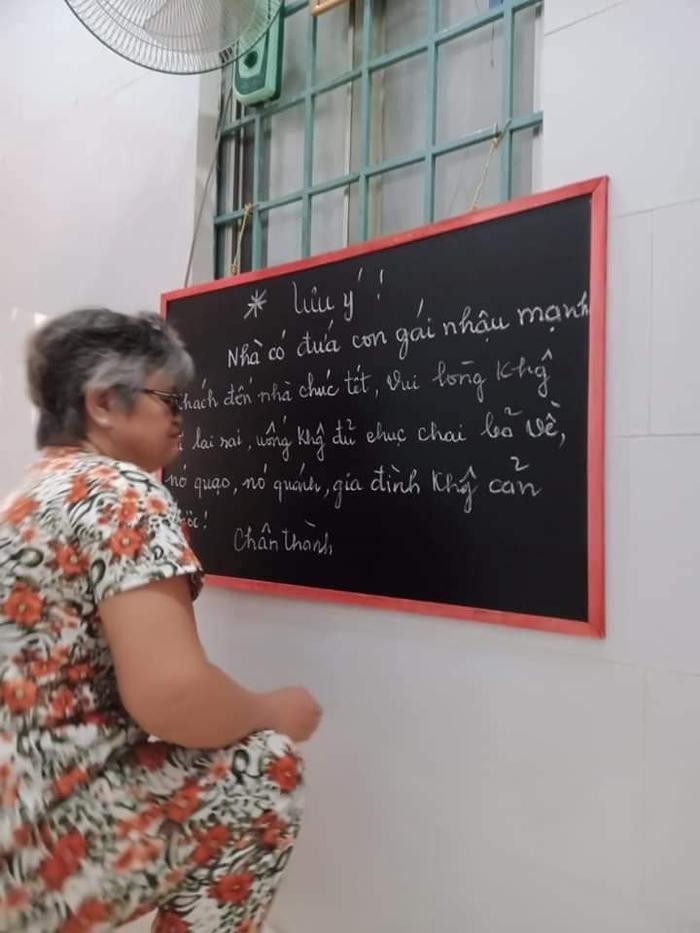 * Lưu ý !
Nhà có đứa con gái nhậu mạnh
khách đến nhà chúc tết, vui lòng Khg
lai rai, uống khg đủ chục chai bỏ về,
nó quạo, nó quánh, gia đình Khg cản
Chân thành